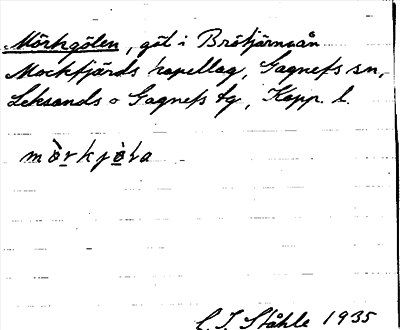 Mörkgölen, göl i Brötjärnsån
Mockfjärds kapellag, Gagnefs sn,
Leksands o Gagnefs tg, Kopp. l.
mò̈rkjö̀la
C. I. Ståhle 1935